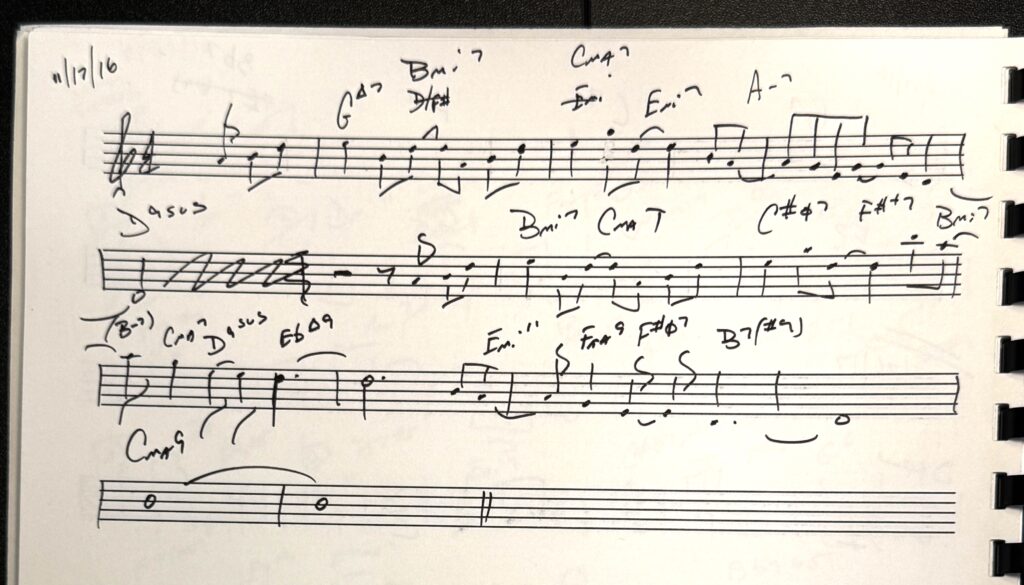 11/17/16
G△7 Bmi7 D/F# Cma7 Emi Emi7 A-7
D9sus Bmi7 Cma7 C#ø7 F#+7 Bmi7
(B-7) Cma7 D9sus Eb△9 Emi11 Fma9 F#ø7 B7(#9)
Cma9